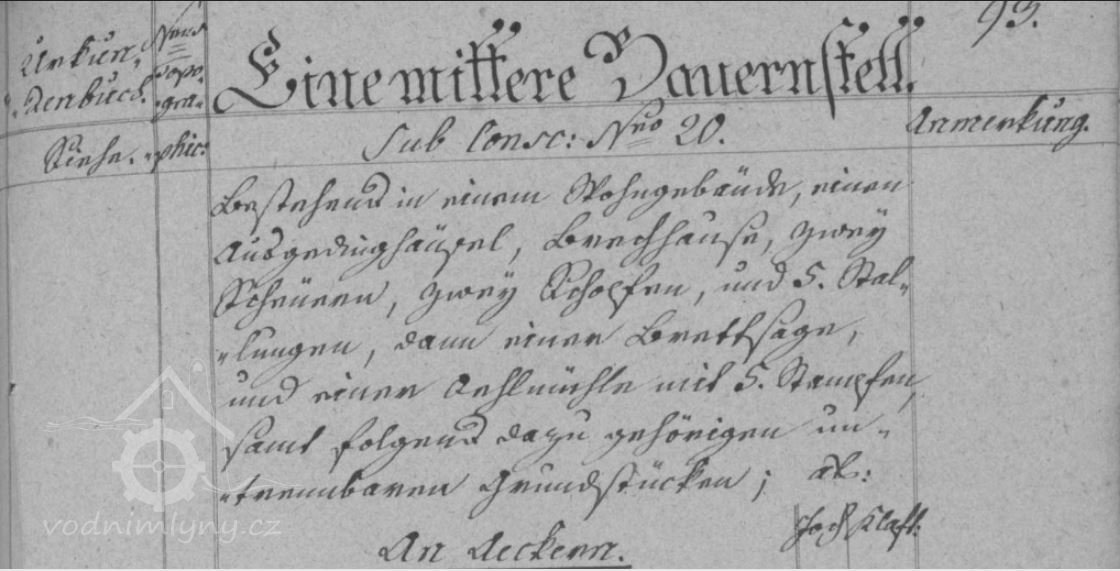 93.
Urkun-
denbuch.
Seite.
Nrus
Topo-
gra-
phic:
Eine mittere Bauernstell.
Sub Consc: Nro 20.
Anmerkung.
Bestehend in einem Wohngebäude, einen
Ausgedinghäusel, Brechhause, zwey
Scheüern, zwey Schopfen, und 5. Stal-
lungen, dann einer Brettsage,
und einer Oehlmühle mit 5. Stampfen,
samt folgend dazu gehörigen un-
trennbaren Grundstücken; als:
Joch Klaft:
An Aeckern.
vodnimlyny.cz